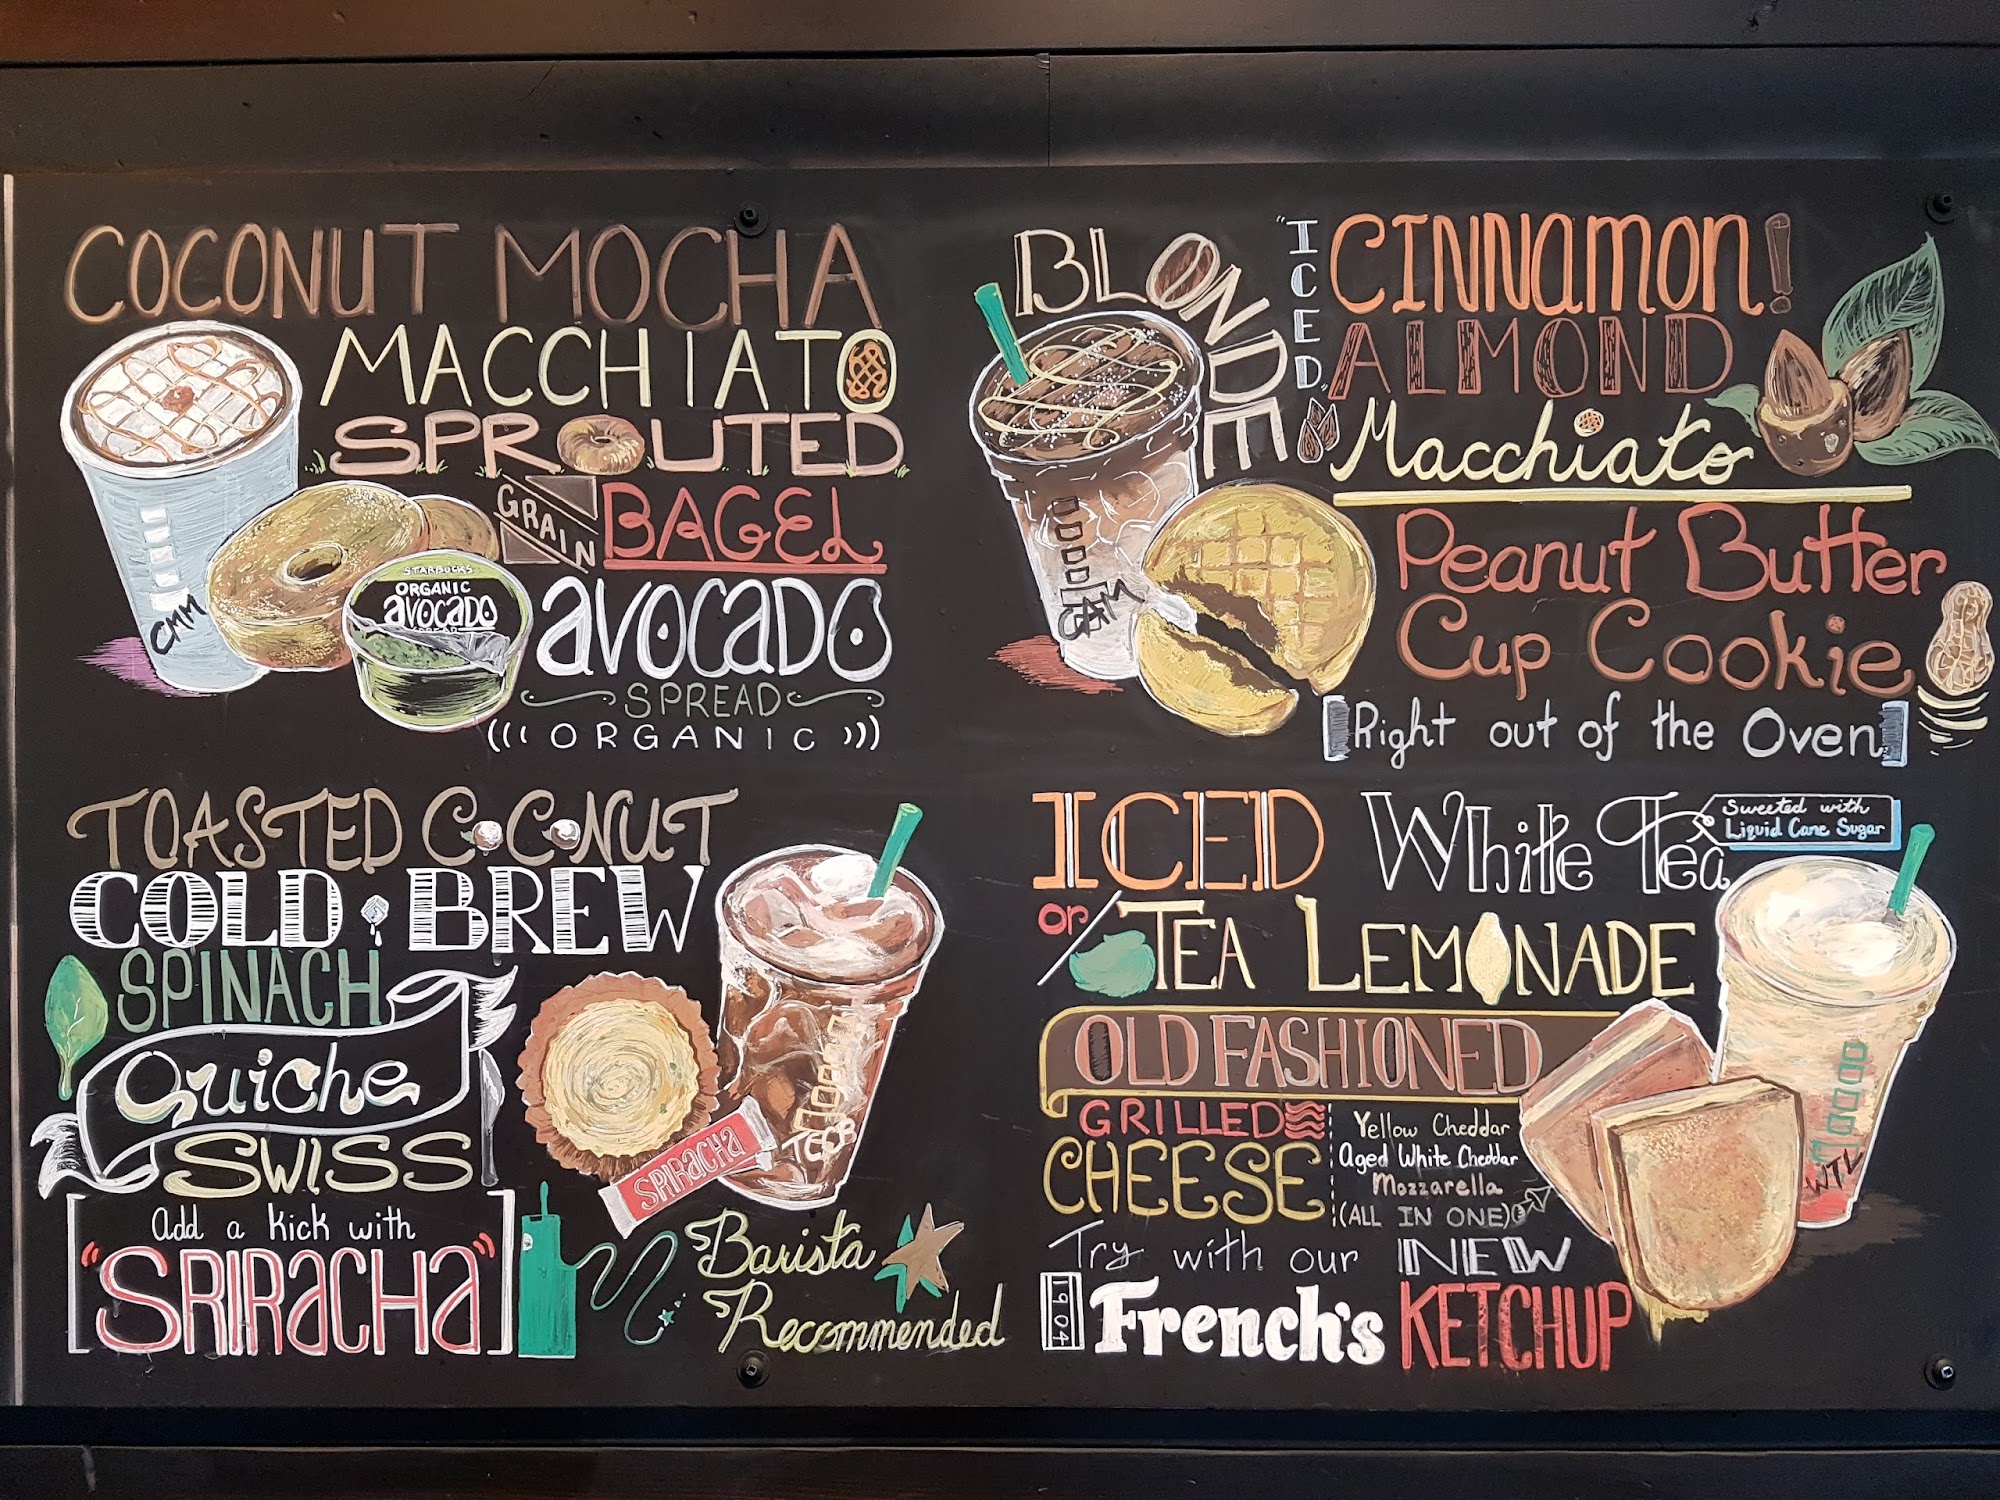 COCONUT MOCHA
MACCHIATO
SPROUTED
GRAIN
BAGEL
avocado
SPREAD
((( ORGANIC )))
STARBUCKS
ORGANIC
avocado
SPREAD
CMM
BLONDE
"ICED"
CINNamon!
ALMOND
Macchiato
Peanut Butter
Cup Cookie
[Right out of the Oven]
CAM
TOASTED COCONUT
COLD BREW
SPINACH
Quiche
SWISS
[Add a Kick with
"SRIRaCHa"]
SRIRACHA
TCCB
Barista
Recommended
ICED White Tea
Sweeted with
Liquid Cane Sugar
or / TEA LEMONADE
OLD FASHIONED
GRILLED
CHEESE
Yellow Cheddar
Aged White Cheddar
Mozzarella
(ALL IN ONE)
Try with our NEW
1904
French's KETCHUP
WTL